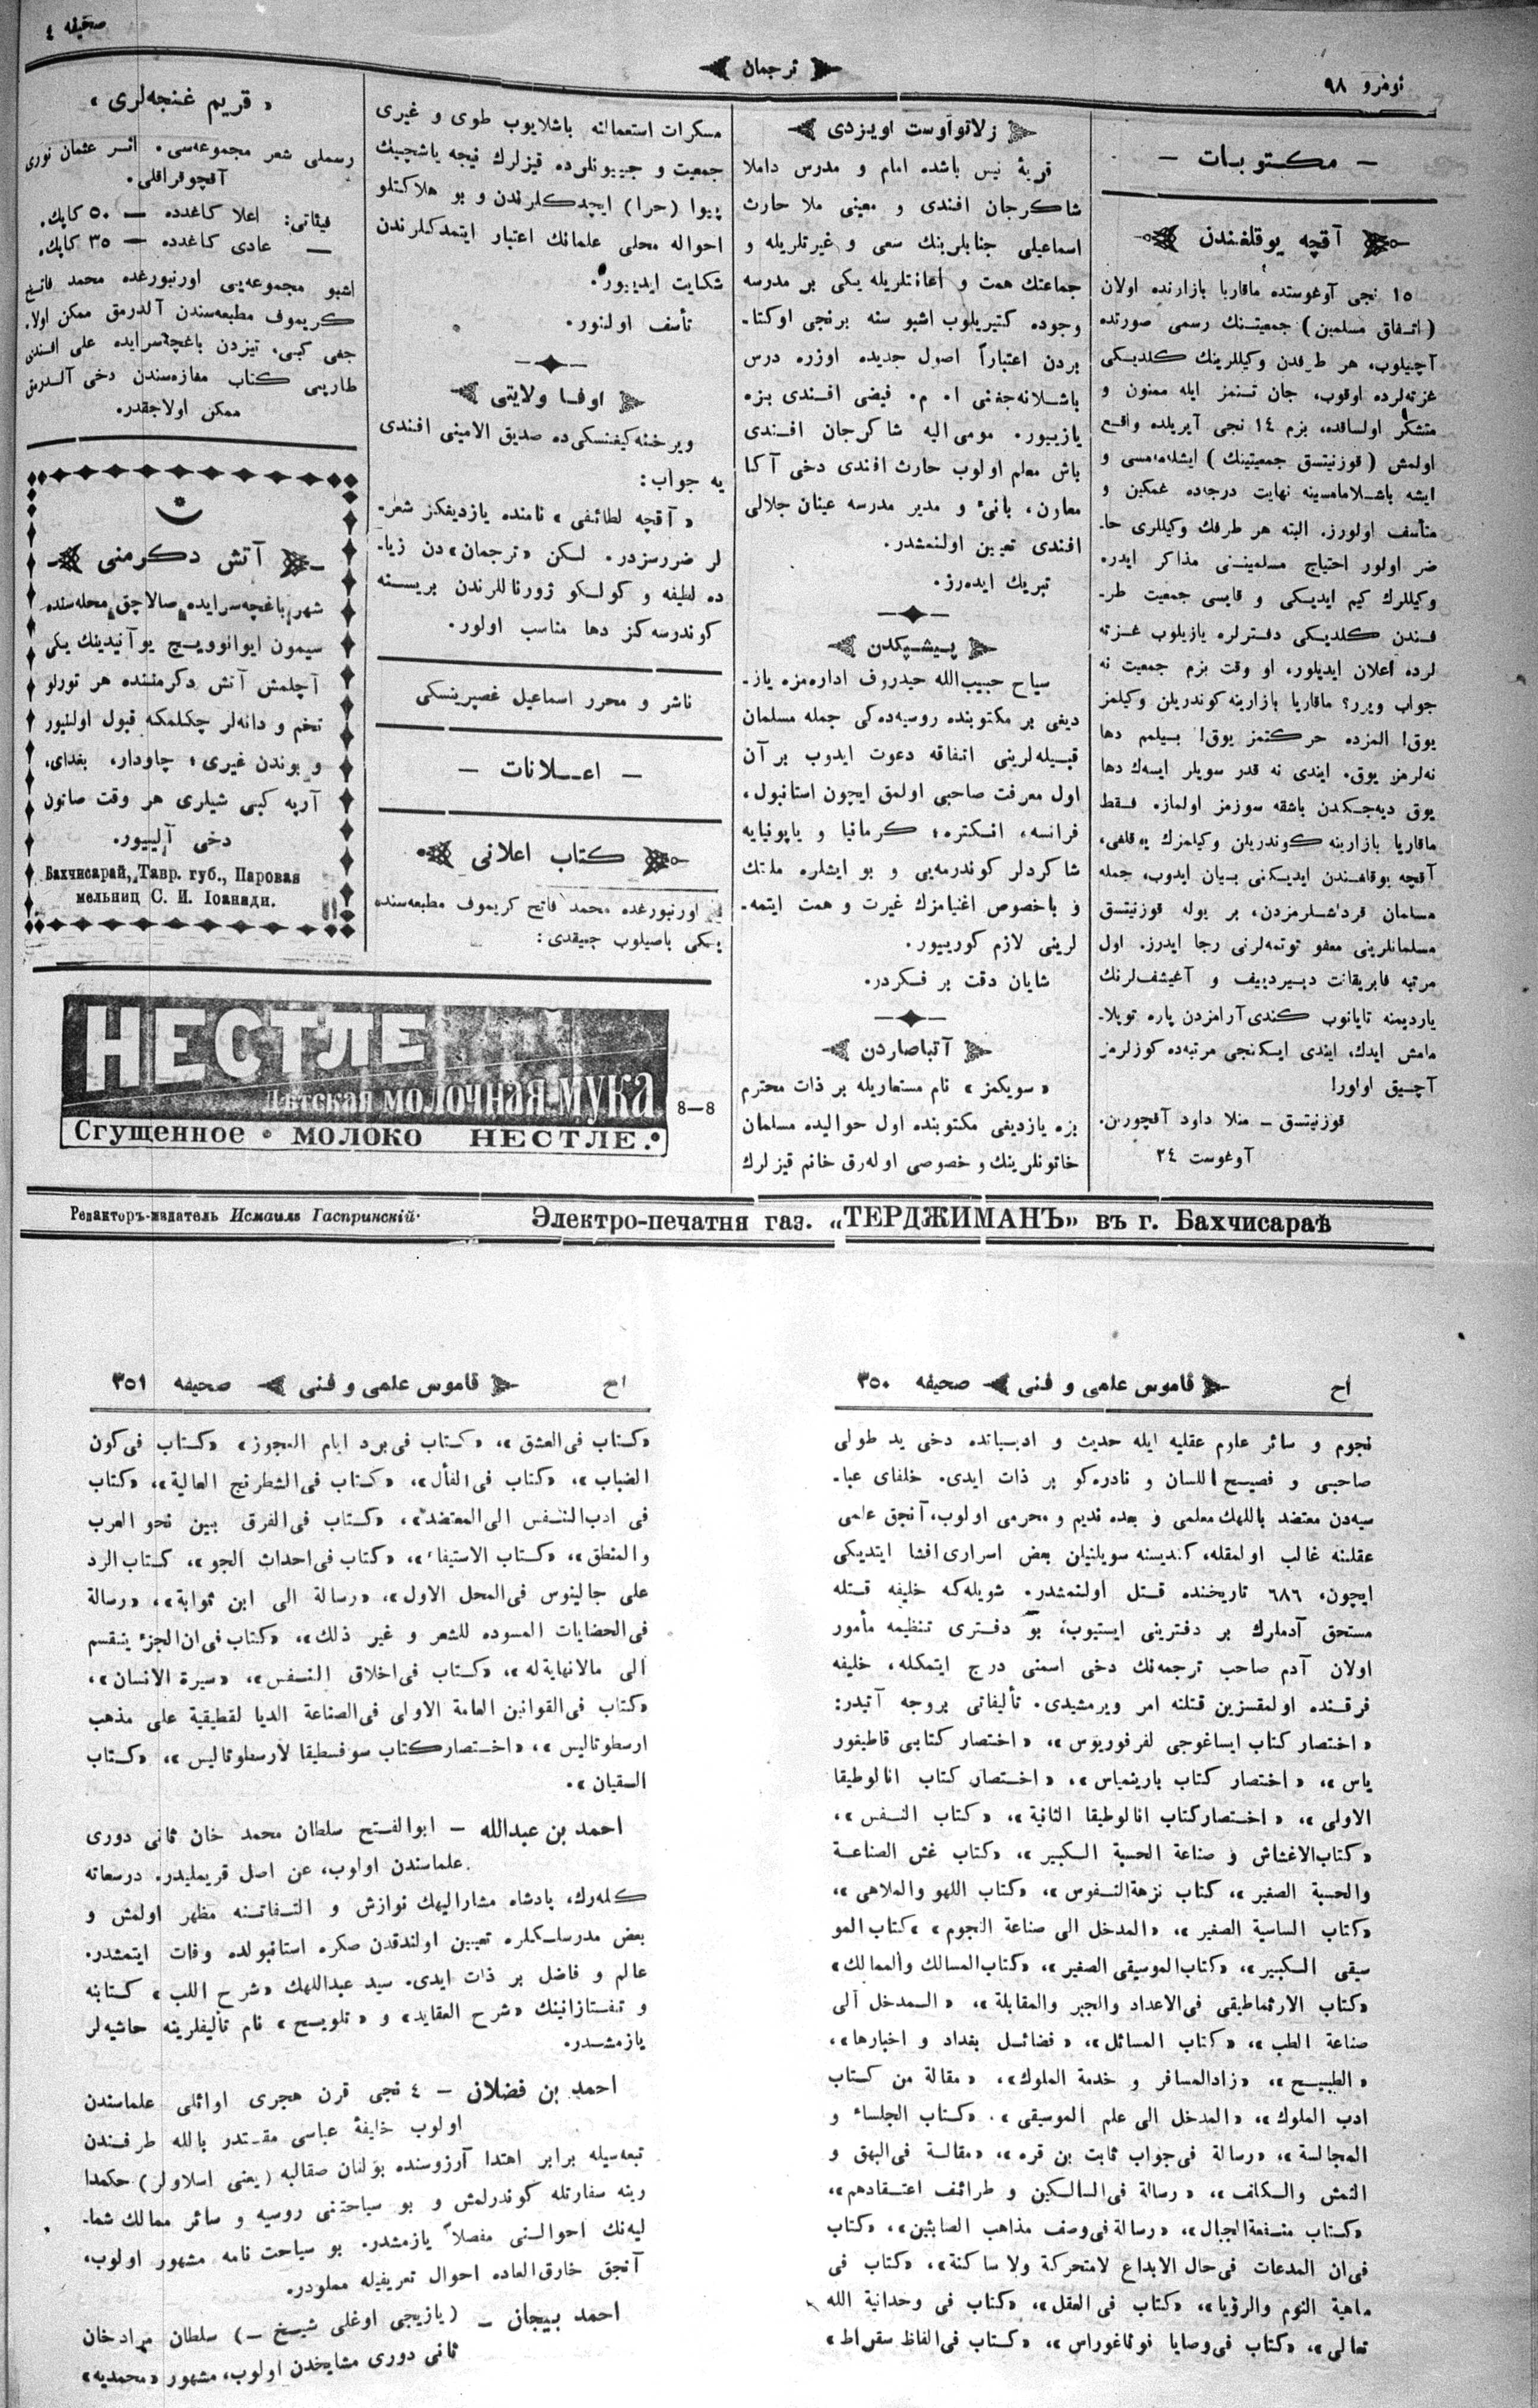 نومرو ٩٨
ترجمان
صحيفه ٤
— مكتوبات —
آقچه يوقلغندن
١٥ نجى آوغوستده ماقاريا بازارنده اولان
(اتفاق مسلمين) جمعيتنك رسمى صورتده
آچيلوب، هر طرفدن وكيللرينك كلديكى
غزته‌لرده اوقوب، جان تنمز ايله ممنون و
متشكر اولساقده، بزم ١٤ نجى آپريلده واقع
اولمش (قوزنيتسق جمعيتينك) ايشلامامسى و
ايشه باشلامامسينه نهايت درجاده غمكين و
متأسف اولورز. البته هر طرفك وكيللرى حا-
ضر اولور احتياج مسلمينى مذاكر ايدر.
وكيللرك كيم ايديكى و قايسى جمعيت طر-
فندن كلديكى دفترلره يازيلوب غزته
لرده اعلان ايديلور، او وقت بزم جمعيت نه
جواب ويرر؟ ماقاريا بازارينه كوندريلن وكيلمز
يوق! المزده حركتمز يوق! بيلمم دها
نه‌لرمز يوق. ايندى نه قدر سويلر ايسه‌ك دها
يوق ديه‌جكدن باشقه سوزمز اولماز. فقط
ماقاريا بازارينه كوندريلن وكيلمزك يوقلغى،
آقچه يوقلغندن ايديكنى بيان ايدوب، جمله
مسلمان قرداشلرمزدن، بر يوله قوزنيتسق
مسلمانلرينى معفو توتمه‌لرنى رجا ايدرز. اول
مرتبه فابريقانت ديبيرديييف و آغيشف‌لرنك
يارديمنه تايانوب كندى آرامزدن پاره توپلا-
مامش ايدك، ايندى ايكنجى مرتبه‌ده كوزلرمز
آچيق اولور!
قوزنيتسق — منلا داود آقچورين.
٢٤ آوغوست
زلاتوآوست اويزدى
قرية نيس باشده امام و مدرس داملا
شاكرجان افندى و معينى ملا حارث
اسماعيلى جنابلرينك سعى و غيرتلريله و
جماعتك همت و اعانتلريله يكى بر مدرسه
وجوده كتيريلوب اشبو سنه برنجى اوكتا-
بردن اعتباراً اصول جديده اوزره درس
باشلانه‌جغنى ا. م. فيضى افندى بزه
يازييور. مومى اليه شاكرجان افندى
باش معلم اولوب حارث افندى دخى آكا
معاون، بانئ و مدير مدرسه عينان جلالى
افندى تعيين اولنمشدر.
تبريك ايده‌رز.
پيشپكدن
سياح حبيب‌الله حيدروف اداره‌مزه ياز-
ديغى بر مكتوبنده روسيه‌ده‌كى جمله مسلمان
قبيله‌لرينى اتفاقه دعوت ايدوب بر آن
اول معرفت صاحبى اولمق ايچون استانبول،
فرانسه، انكلتره، گرمانيا و ياپونيايه
شاكردلر كوندرمه‌يى و بو ايشلره ملتك
و باخصوص اغنيامزك غيرت و همت ايتمه-
لرينى لازم كورييور.
شايان دقت بر فكردر.
آتباصاردن
«سويكمز» نام مستعاريله بر ذات محترم
بزه يازديغى مكتوبنده اول حواليده مسلمان
خاتونلرينك و خصوصى اوله‌رق خانم قيزلرك
مسكرات استعمالنه باشلايوب طوى و غيرى
جمعيت و جييونلرده قيزلرك نيچه ياشچينك
پيوا (حرا) ايچدكلرندن و بو هلاكتلو
احواله محلى علمانك اعتبار ايتمدكلرندن
شكايت ايدييور.
تأسف اولنور.
اوفا ولايتى
ويرخنه‌كيغنسكى‌ده صديق الامينى افندى
يه جواب:
«آقچه لطائفى» نامنده يازديغكز شعر-
لر ضررسزدر. لكن «ترجمان»دن زيا-
ده لطيفه و كولكو ژورناللرندن بريسنه
كوندرسه‌كز دها مناسب اولور.
ناشر و محرر اسماعيل غصپرينسكى
— اعلانات —
كتاب اعلانى
اورنبورغده محمد فاتح كريموف مطبعه‌سنده
يكى باصيلوب چيقدى:
«قريم غنجه‌لرى»
رسملى شعر مجموعه‌سى. اثر عثمان نورى
آقچوقراقلى.
فيئاتى: اعلا كاغدده — ٥٠ كاپك.
— عادى كاغدده — ٣٥ كاپك.
اشبو مجموعه‌يى اورنبورغده محمد فاتح
كريموف مطبعه‌سندن آلدرمق ممكن اولا-
جغى كبى، تيزدن باغچه‌سرايده على افندى
طارپى كتاب مغازه‌سندن دخى آلدرمق
ممكن اولاجقدر.
آتش دكرمنى
شهر باغچه‌سرايده صالاچق محله‌سنده
سيمون ايوانوويچ يوآنيدينك يكى
آچلمش آتش دكرمننده هر تورلو
تخم و دانه‌لر چكلمكه قبول اولنيور
و بوندن غيرى؛ چاودار، بغداى،
آرپه كبى شيلرى هر وقت صاتون
دخى آليييور.
Бахчисарай, Тавр. губ., Паровая
мельниц С. И. Іоаниди.
НЕСТЛЕ
Дѣтская МОЛОЧНАЯ МУКА
Сгущенное • МОЛОКО НЕСТЛЕ.
8—8
Редакторъ-издатель Исмаилъ Гаспринскій.
Электро-печатня газ. „ТЕРДЖИМАНЪ" въ г. Бахчисараѣ
اح
قاموس علمى و فنى
صحيفه ٣٥٠
نجوم و سائر علوم عقليه ايله حديث و ادبياتده دخى يد طولى
صاحبى و فصيح اللسان و نادره‌كو بر ذات ايدى. خلفاى عبا-
سيه‌دن معتضد باللهك معلمى و بعده نديم و محرمى اولوب، آنجق علمى
عقلنه غالب اولمقله، كنديسنه سويلنيلن بعض اسرارى افشا ايتديكى
ايچون، ٦٨٦ تاريخنده قتل اولنمشدر. شويله‌كه خليفه قتله
مستحق آدملرك بر دفترينى ايستيوب، بو دفترى تنظيمه مأمور
اولان آدم صاحب ترجمه‌نك دخى اسمنى درج ايتمكله، خليفه
فرقنده اولمقسزين قتلنه امر ويرمشيدى. تأليفاتى بروجه آتيدر:
«اختصار كتاب ايساغوجى لفرفوريوس»، «اختصار كتابى قاطيغور
ياس»، «اختصار كتاب باريتمياس»، «اختصار كتاب انالوطيقا
الاولى»، «اختصار كتاب انالوطيقا الثانية»، «كتاب النفس»،
«كتاب الاغشاش و صناعة الحسبة الكبير»، «كتاب غش الصناعة
والحسبة الصغير»، كتاب نزهة‌النفوس»، «كتاب اللهو والملاهى»،
«كتاب السياسية الصغير»، «المدخل الى صناعة النجوم» «كتاب المو
سيقى الكبير»، «كتاب الموسيقى الصغير»، «كتاب المسالك والممالك»
«كتاب الارثماطيقى فى‌الاعداد والجبر والمقابلة»، «المدخل الى
صناعة الطب»، «كتاب المسائل»، «فضائل بغداد و اخبارها»،
«الطبيخ»، «زادالمسافر و خدمة الملوك»، «مقالة من كتاب
ادب الملوك»، «المدخل الى علم الموسيقى»، «كتاب الجلساء و
المجالسة»، «رسالة فى جواب ثابت بن قره»، «مقالة فى‌البهق و
النمش والكلف»، «رسالة فى‌السالكين و طرائف اعتقادهم»،
«كتاب منفعة‌الجبال»، «رسالة فى وصف مذاهب الصابئين»، «كتاب
فى ان المدعات فى حال الابداع لامتحركة ولا ساكنة»، «كتاب فى
ماهية النوم والرؤيا»، «كتاب فى العقل»، «كتاب فى وحدانية الله
تعالى»، «كتاب فى وصايا فوثاغوراس»، «كتاب فى الفاظ سقراط»
اح
قاموس علمى و فنى
صحيفه ٣٥١
«كتاب فى‌العشق»، «كتاب فى برد ايام العجوز» «كتاب فى كون
الضباب»، «كتاب فى‌الفأل»، «كتاب فى‌الشطرنج العالية»، «كتاب
فى ادب‌النفس الى‌المعتضد»، «كتاب فى‌الفرق بين نحو العرب
والمنطق»، «كتاب الاستيفاء»، «كتاب فى احداث الجو»، كتاب الرد
على جالينوس فى‌المحل الاول»، «رسالة الى ابن ثوابة»، «رسالة
فى‌الحضايات المسوده للشعر و غير ذلك»، «كتاب فى ان‌الجزء ينقسم
الى مالانهاية له»، «كتاب فى اخلاق النفس»، «سيرة الانسان»،
«كتاب فى‌القوانين العامة الاولى فى‌الصناعة الديا لقطيقية على مذهب
ارسطوتاليس»، «اختصار كتاب سوفسطيقا لارسطوتاليس»، «كتاب
القيان».
احمد بن عبدالله — ابوالفتح سلطان محمد خان ثانى دورى
علماسندن اولوب، عن اصل قريمليدر. درسعاته
كله‌رك، پادشاه مشاراليهك نوازش و التفاتنه مظهر اولمش و
بعض مدرسه‌لكلره تعيين اولندقدن صكره استانبولده وفات ايتمشدر.
عالم و فاضل بر ذات ايدى. سيد عبداللهك «شرح اللب» كتابنه
و تفتازانينك «شرح العقايد» و «تلويح» نام تأليفلرينه حاشيه‌لر
يازمشدر.
احمد بن فضلان — ٤ نجى قرن هجرى اوائلى علماسندن
اولوب خليفۀ عباسى مقتدر بالله طرفندن
تبعه‌سيله برابر اهتدا آرزوسنده بولنان صقالبه (يعنى اسلاولر) حكمدا
رينه سفارتله كوندرلمش و بو سياحتنى روسيه و سائر ممالك شما-
ليه‌نك احوالنى مفصلاً يازمشدر. بو سياحت نامه مشهور اولوب،
آنجق خارق‌العاده احوال تعريفيله مملودر.
احمد بيجان — (يازيجى اوغلى شيخ —) سلطان مراد خان
ثانى دورى مشايخدن اولوب، مشهور «محمديه»